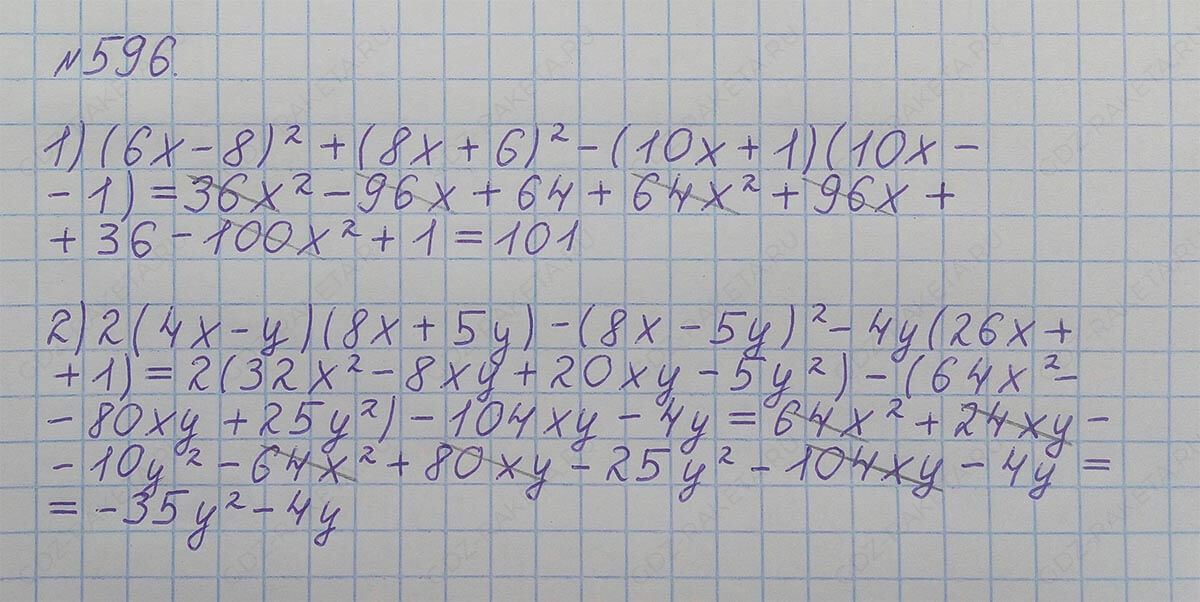 №596.
1) (6x - 8)² + (8x + 6)² - (10x + 1)(10x -
- 1) = 36x² - 96x + 64 + 64x² + 96x +
+ 36 - 100x² + 1 = 101
2) 2(4x - y)(8x + 5y) - (8x - 5y)² - 4y(26x +
+ 1) = 2(32x² - 8xy + 20xy - 5y²) - (64x² -
- 80xy + 25y²) - 104xy - 4y = 64x² + 24xy -
- 10y² - 64x² + 80xy - 25y² - 104xy - 4y =
= -35y² - 4y
GDZ-RAKETA.RU